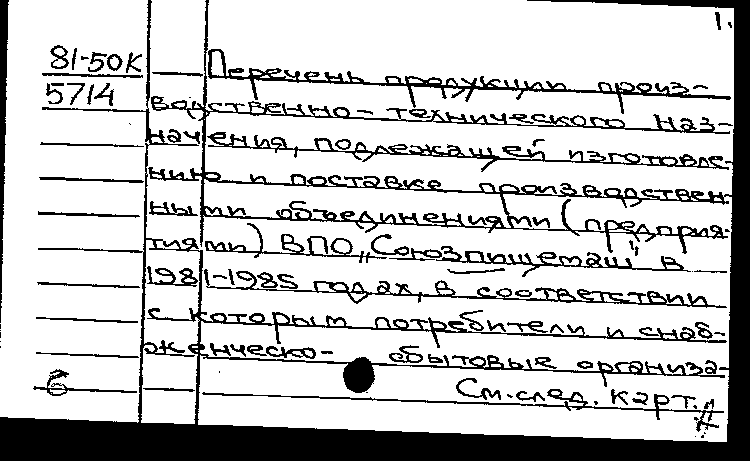 1.
81-50К Перечень продукции произ-
5714 водственно-технического наз-
начения, подлежащей изготовле-
нию и поставке производствен-
ными объединениями (предприя-
тиями) ВПО „Союзпищемаш" в
1981-1985 годах, в соответствии
с которым потребители и снаб-
женческо- сбытовые организа-
б См. след. карт.